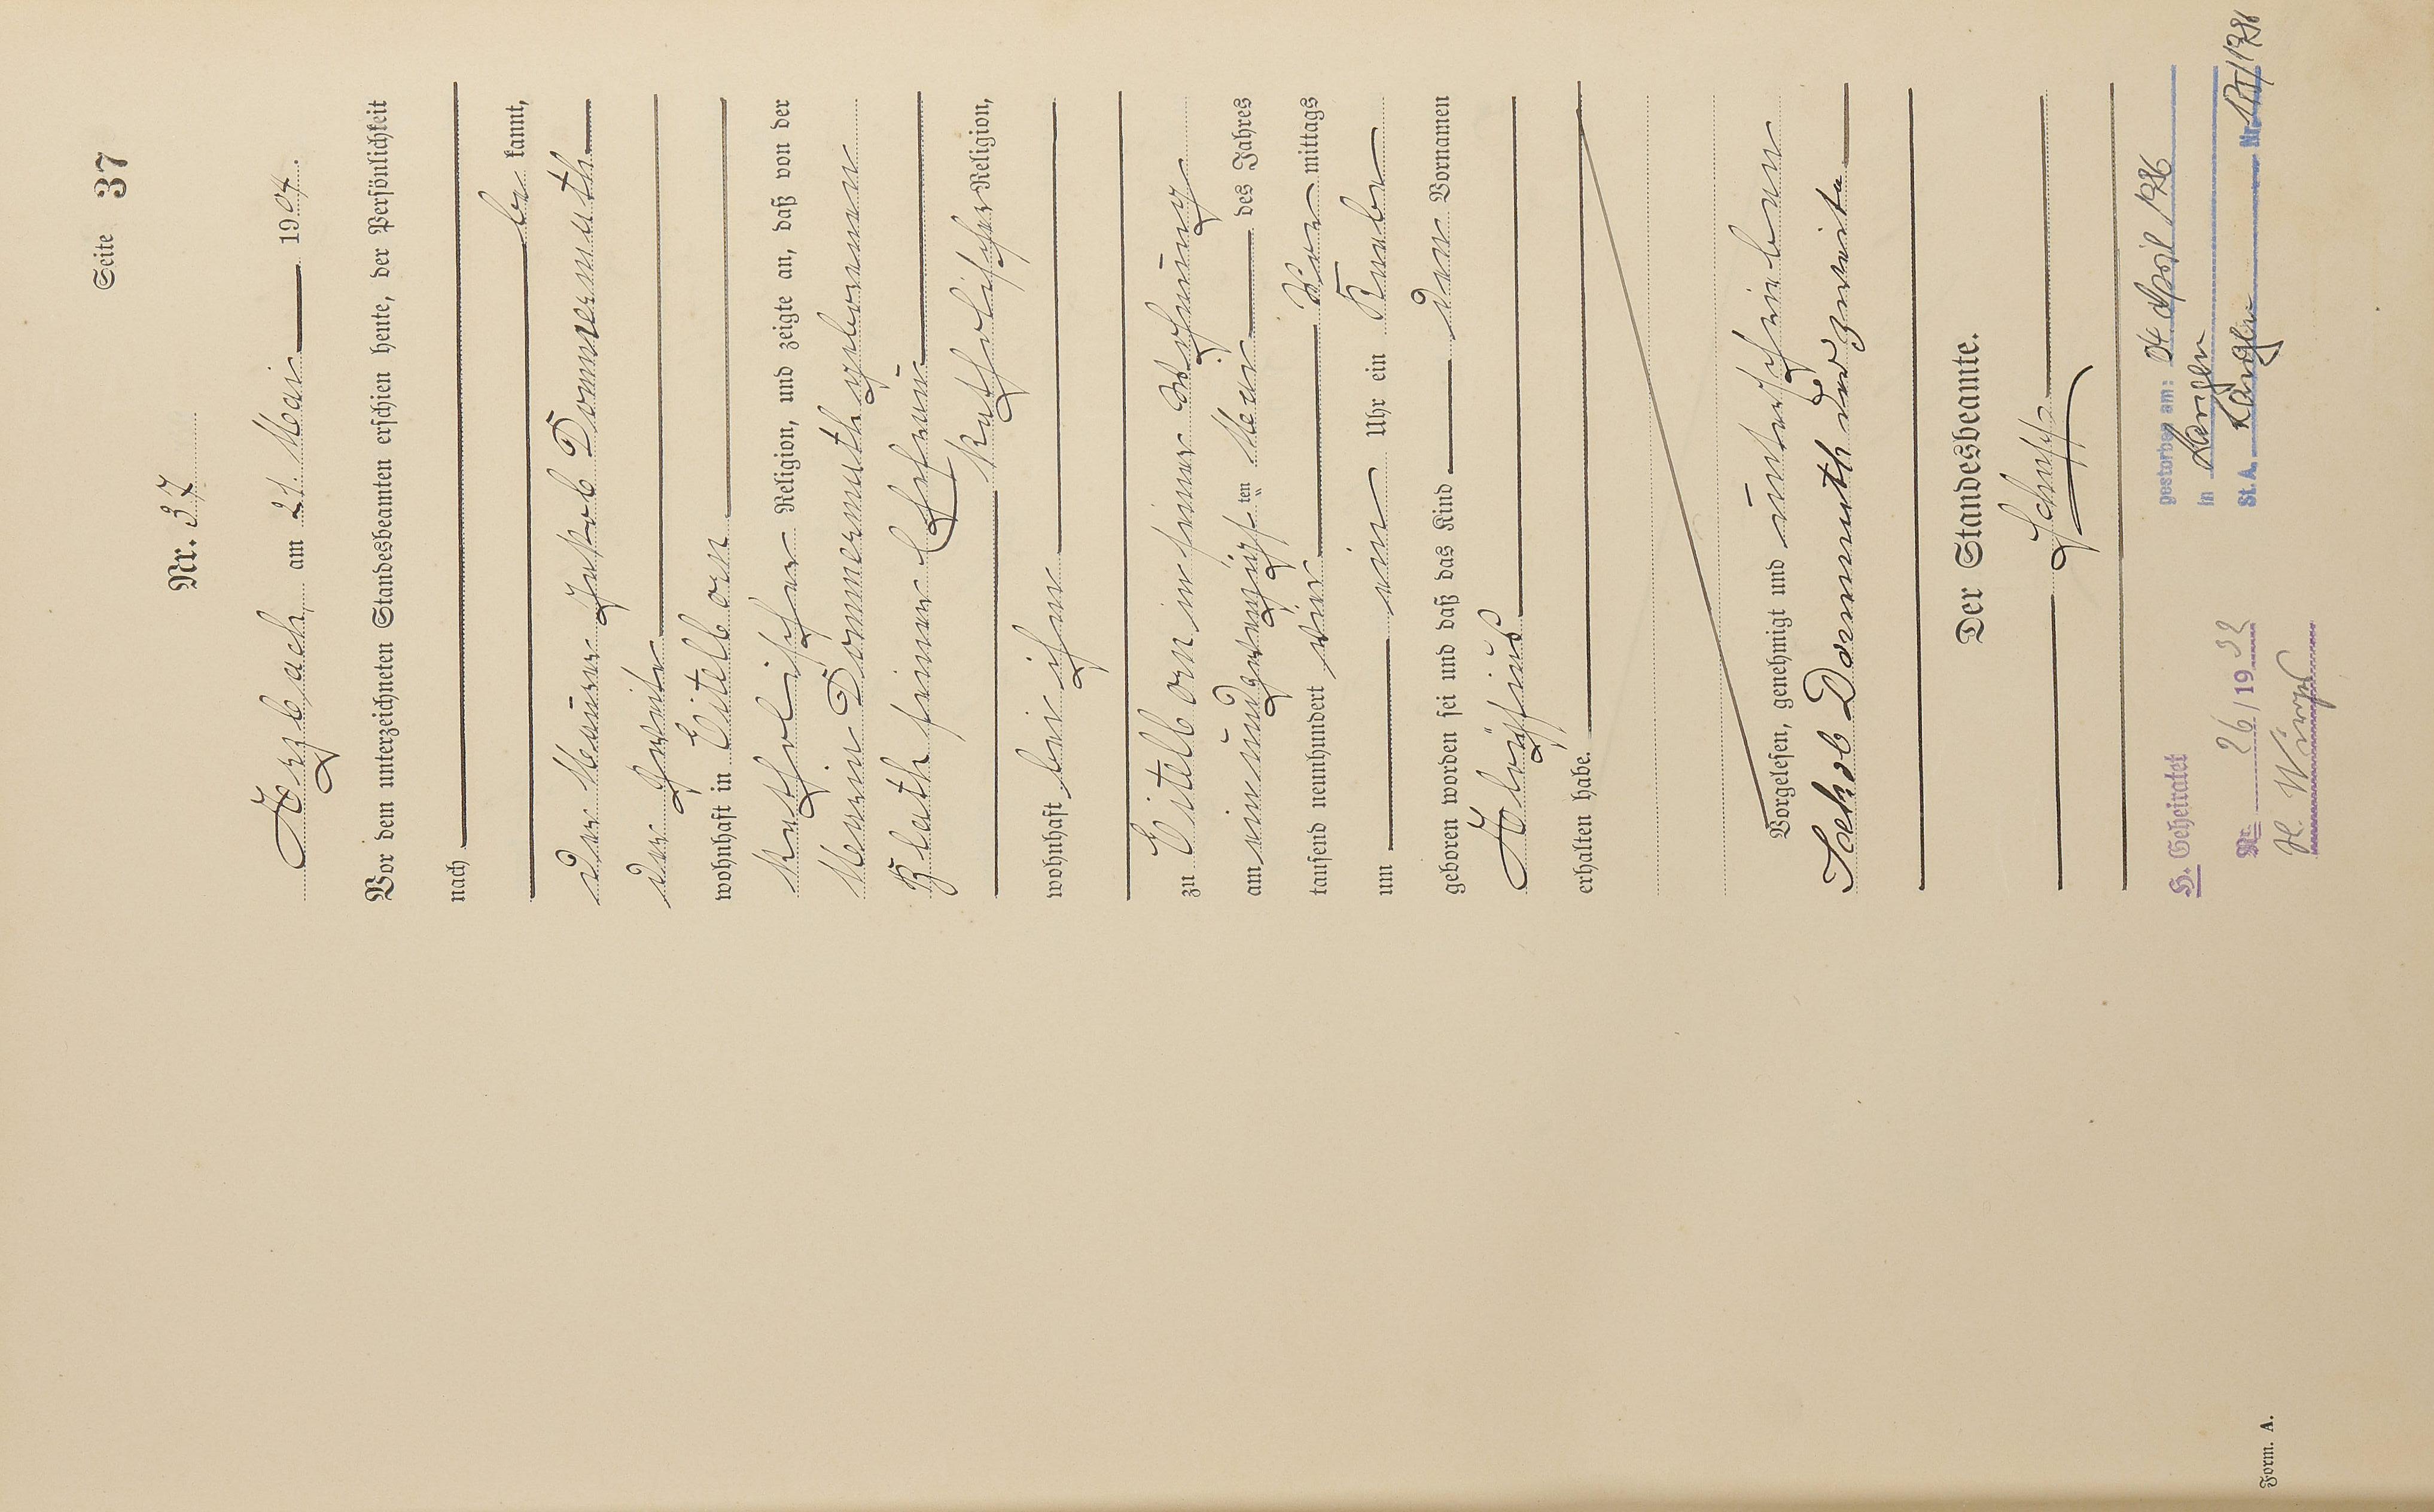 Seite 37
Nr. 37
Arzbach am 21. Mai 1904.
Vor dem unterzeichneten Standesbeamten erschien heute, der Persönlichkeit
nach
be kannt,
der Maurer Jakob Dommermuth
der Zweite
wohnhaft in Eitelborn
katholischer Religion, und zeigte an, daß von der
Maria Dommermuth geborenen
Blath seiner Ehefrau
katholischer Religion,
wohnhaft bei ihm
zu Eitelborn in seiner Wohnung
am einundzwanzigsten Mai des Jahres
tausend neunhundert vier Vor mittags
um ein Uhr ein Knabe
geboren worden sei und daß das Kind den Vornamen
Aloysius
erhalten habe.
Vorgelesen, genehmigt und unterschrieben
Jakob Dommermuth der zweite
Der Standesbeamte.
Schupp
H. Geheiratet
Nr. 26/1932
gestorben am: 04 April 1986
in
St.A. Nr.
Form. A.